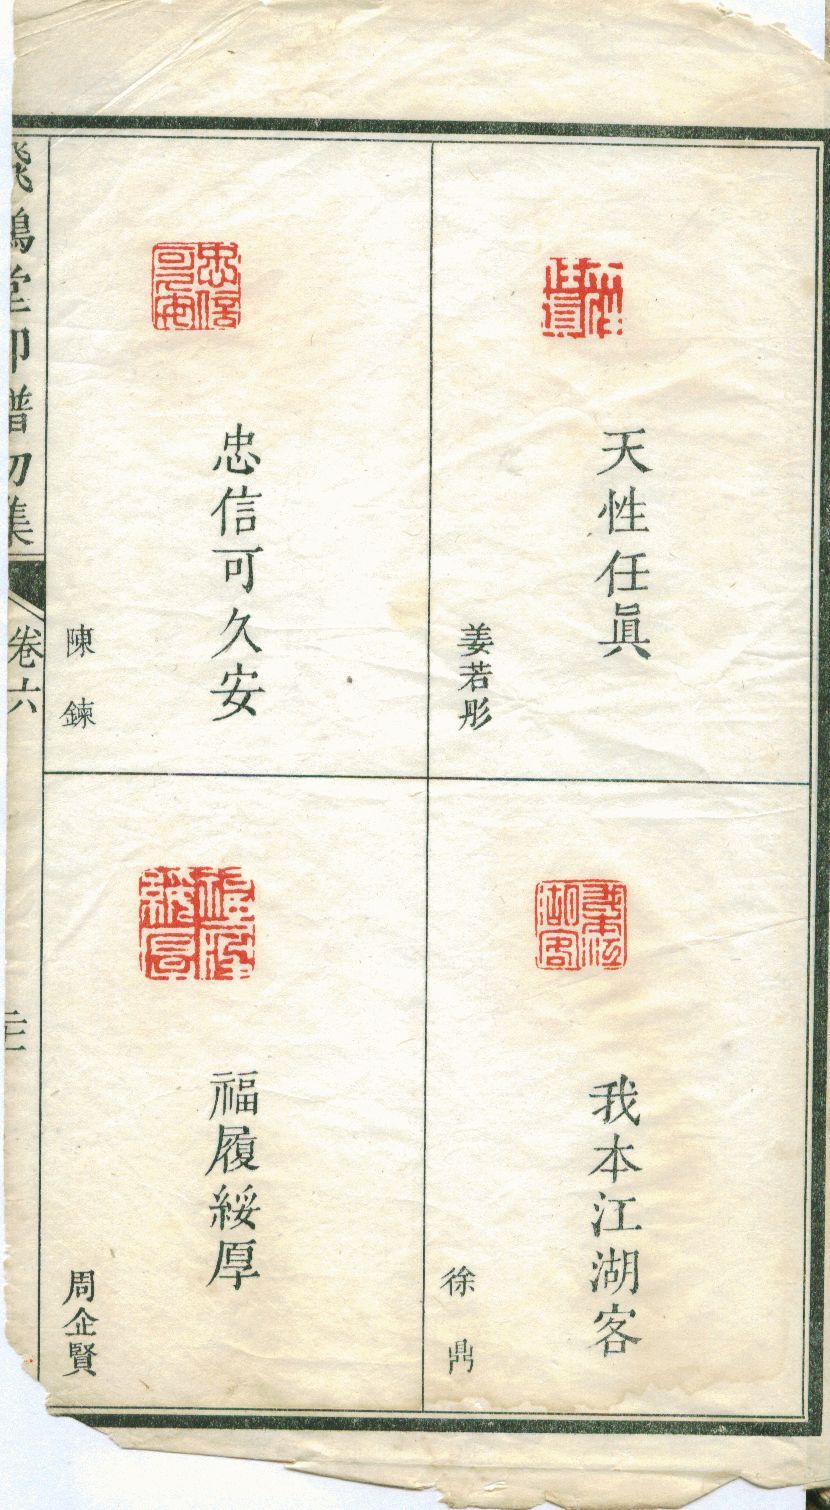 天性任眞
姜若彤
我本江湖客
徐鼎
忠信可久安
陳鍊
福履綏厚
周企賢
飛鴻堂印譜初集
卷六